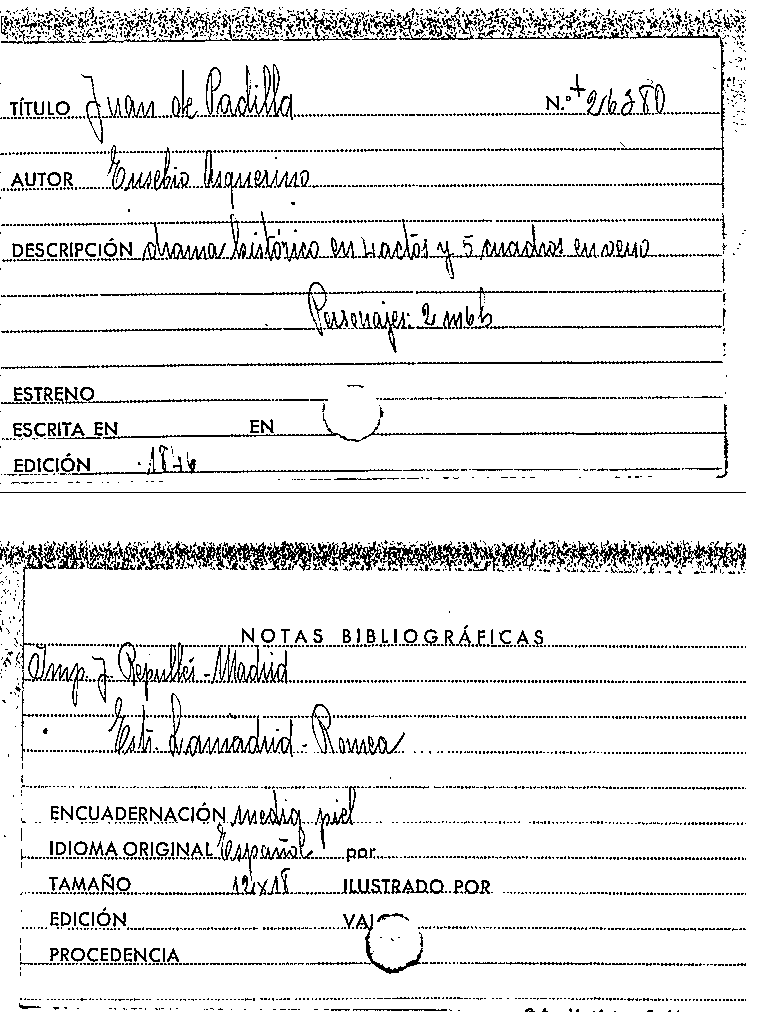 TÍTULO Juan de Padilla N.º + 26380
AUTOR Eusebio Asquerino
DESCRIPCIÓN drama histórico en 4 actos y 5 cuadros en verso
Personajes: 2 m 6 h
ESTRENO
ESCRITA EN EN
EDICIÓN
NOTAS BIBLIOGRÁFICAS
Imp. J. Repullés - Madrid
Estr. Lamadrid - Romea
ENCUADERNACIÓN media piel
IDIOMA ORIGINAL Español por
TAMAÑO 12x18 ILUSTRADO POR
EDICIÓN
PROCEDENCIA